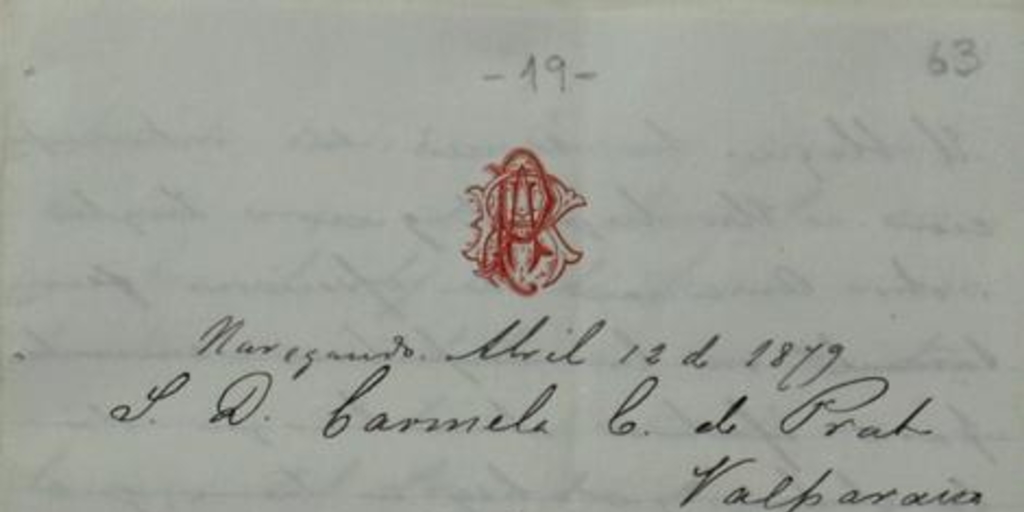 63
-19-
Navegando. Abril 12 d 1879
S. D. Carmela C. de Prat
Valparaiso